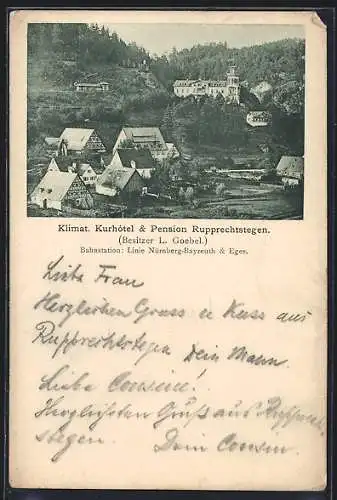 Klimat. Kurhôtel & Pension Rupprechtstegen.
(Besitzer L. Goebel.)
Bahnstation: Linie Nürnberg-Bayreuth & Eger.
Liebe Frau
Herzlichen Gruss u Kuss aus
Rupprechtstegen Dein Mann.
Liebe Cousine!
Herzlichsten Gruß aus Rupprech-
stegen. Dein Cousin.